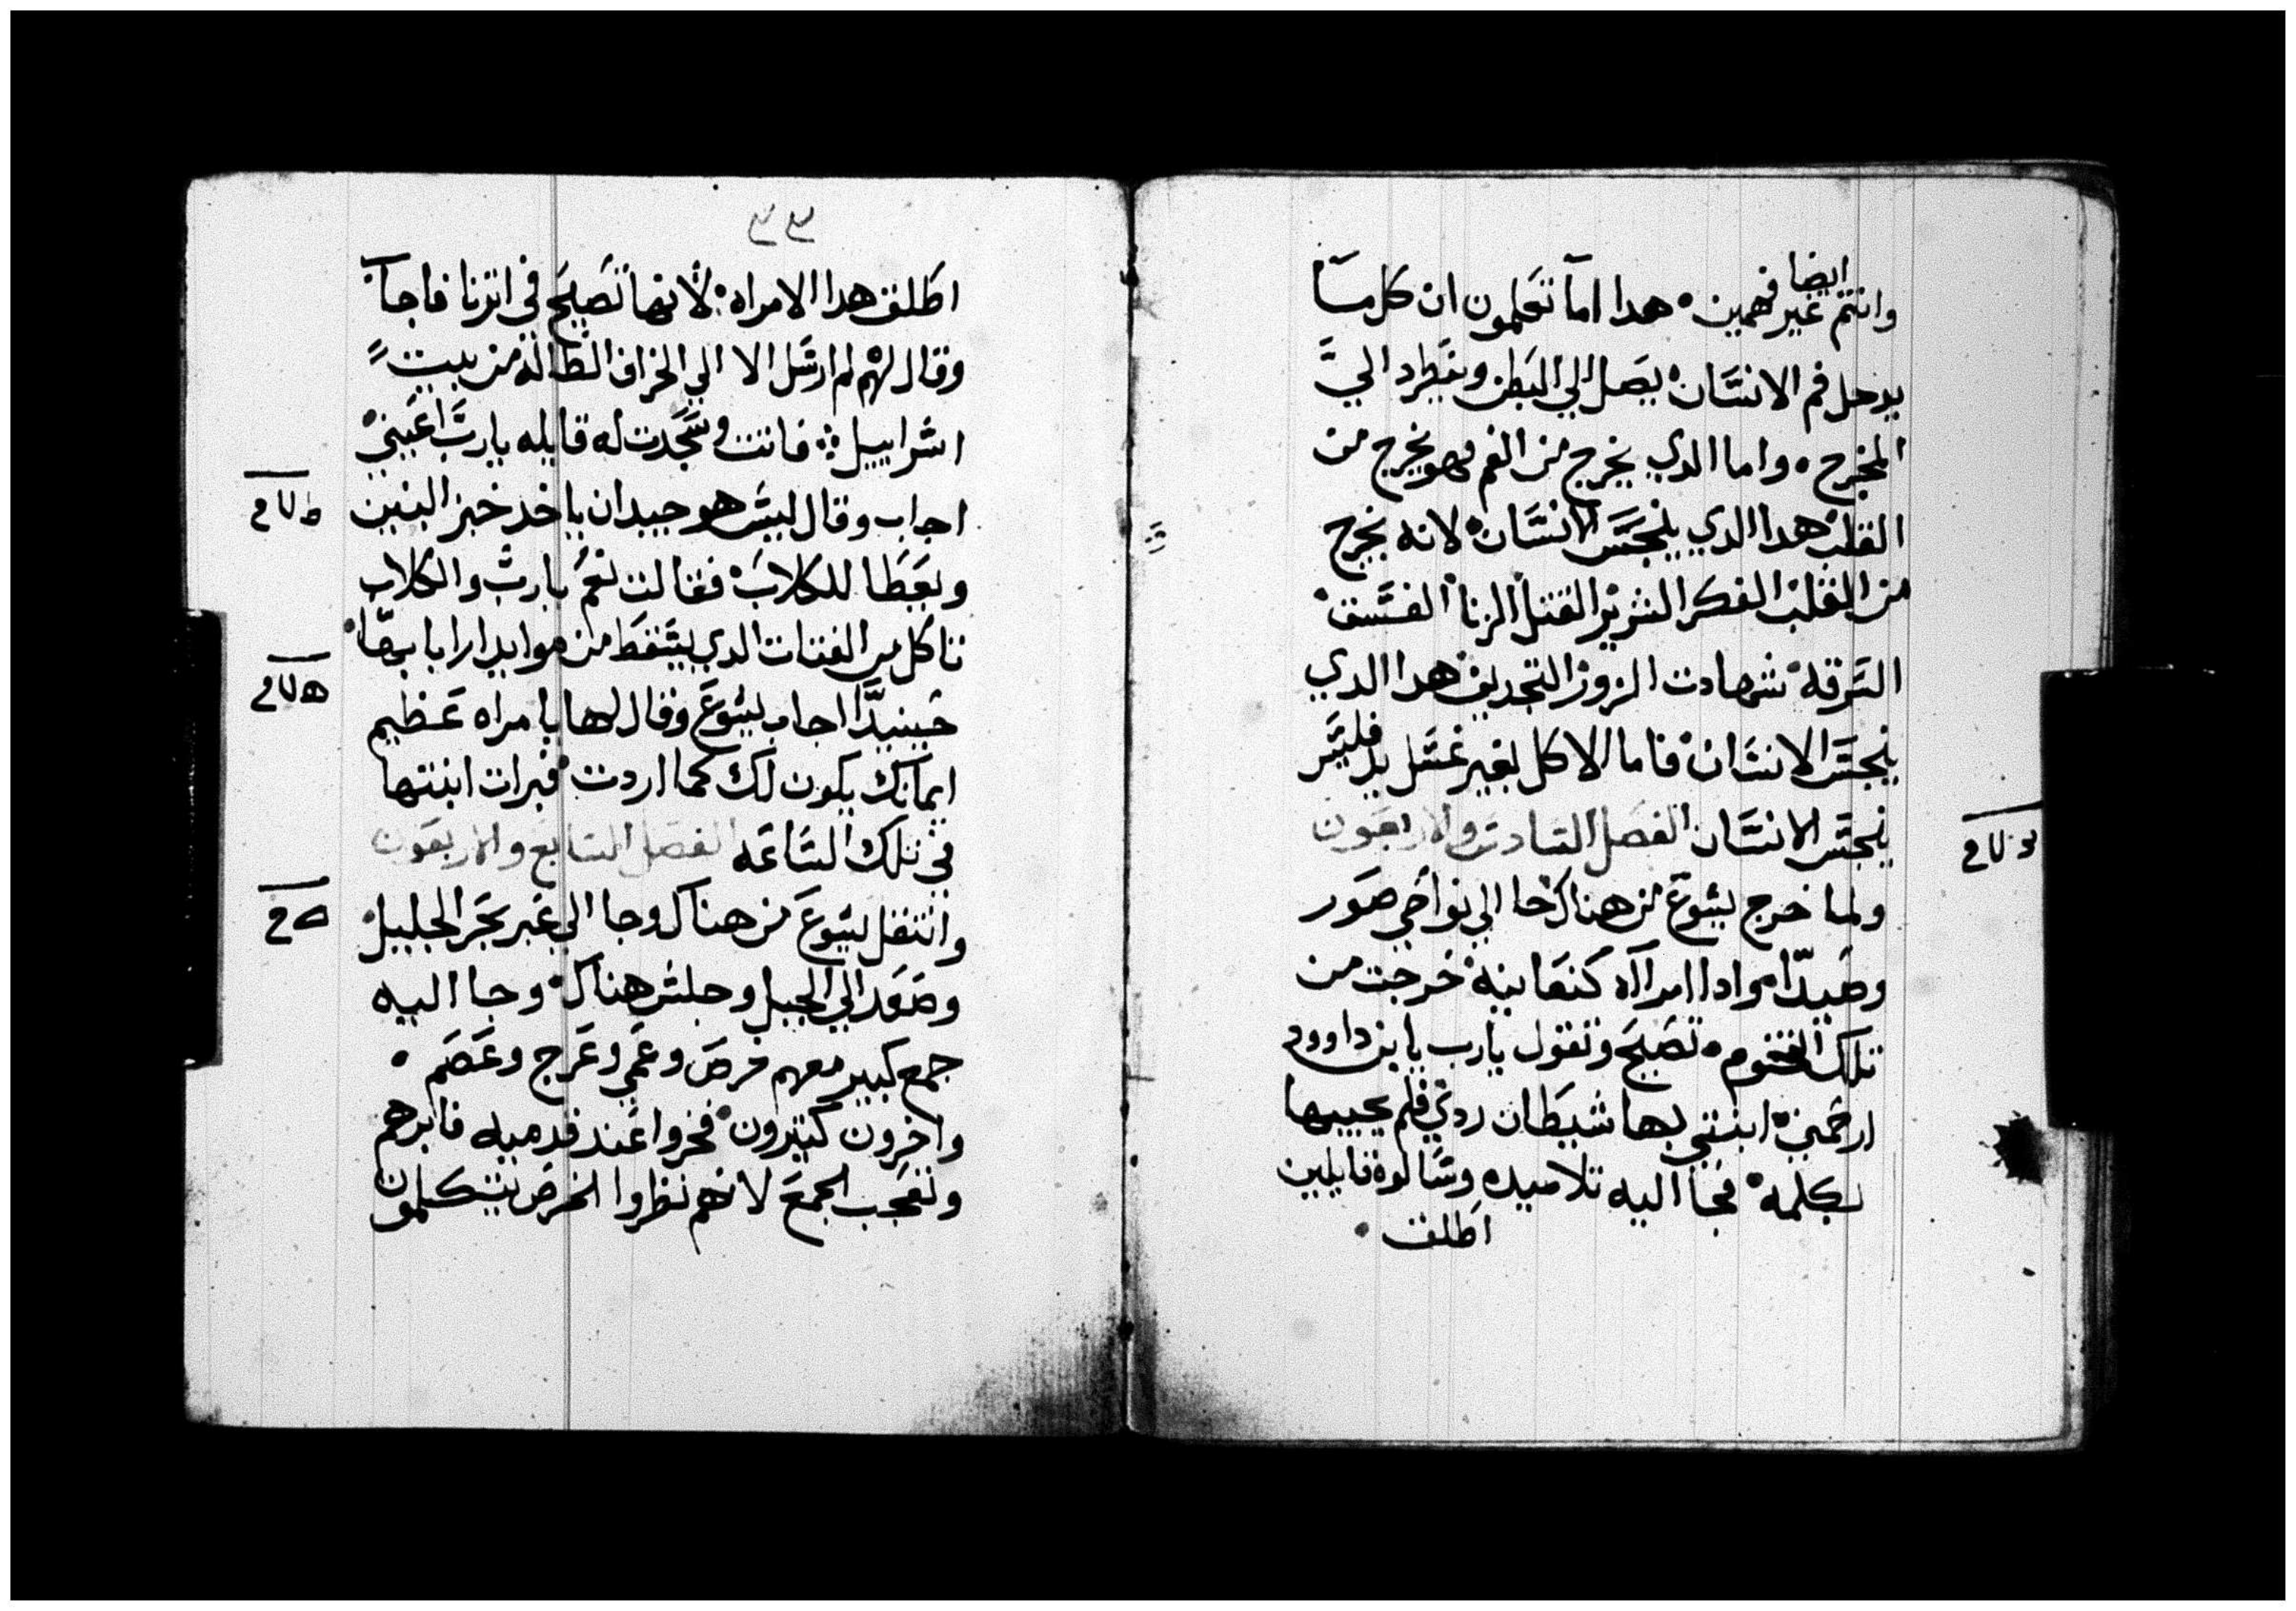 ايضا
وانتم غير فهمين • هدا اما تعلمون ان كل مسا
يدحل فم الانسان يصل الي البطن ويطرد الي
المخرج • واما الدي يخرج من الفم فهو يخرج من
القلب هدا الدي ينجس الانسان لانه يخرج
من القلب الفكر الشرير القتل الزنا الفسق
السرقه شهادت الزور التجديف هدا الدي
ينجس الانسان فاما الاكل بغير غسل يد فليس
ينجس الانسان الفصل السادس والاربعون
ولما خرج يسوع من هناك جا الي نواحي صور
وصيدا وادا امرااه كنعانيه خرجت من
تلك التخوم • تصيح وتقول يارب يابن داوود
ارحمني ابنتي بها شيطان ردي فلم يجيبها
بكلمه فجا اليه تلاميده وسالوه قايلين
اطلق •
اطلق هدا الامراه لانها تصيح في اترنا فاجا
وقال لهم لم ارسل الا الي الخراف الضاله من بيت
اسراييل فاتت وسجدت له قايله يارب اعيني
اجاب وقال ليس هو جيدان ياخد خبز البنين
ويعطا للكلاب فقالت نعم يارب والكلاب
تاكل من الفتات الدي يسقط من موايد اربابها
حينيدا اجاب يسوع وقال لها يا مراه عظيم
ايمانك يكون لك كما اردت فبرات ابنتها
في تلك الساعه الفصل السابع والاربعون
وانتقل يسوع من هناك وجا الي عبر بحر الجليل
وصعد الي الجبل وجلس هناك وجا اليه
جمع كبير معهم خرص وعمي وعرج وعصم •
واخرون كتيرون فخروا عند قدميه فابرهم
وتعجب الجمع لانهم نظروا الخرص يتكلمون